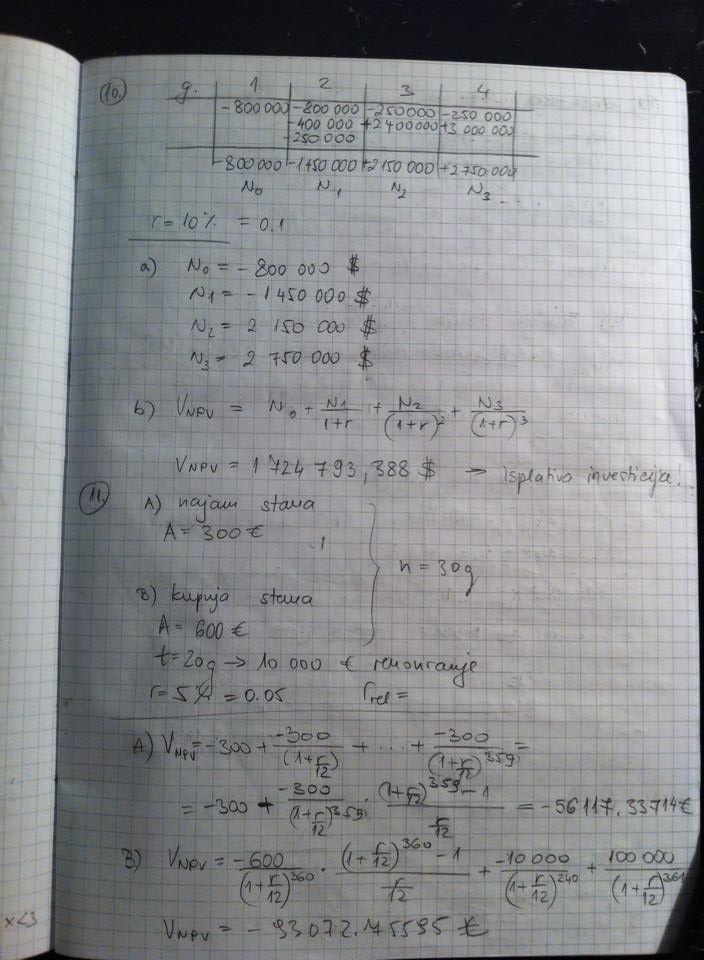 10. g. 1 2 3 4
-800 000 -800 000 -250 000 -250 000
-400 000 +2 400 000 +3 000 000
-250 000
-800 000 -1450 000 +2 150 000 +2 750 000
N₀ N₁ N₂ N₃
r = 10% = 0.1
a) N₀ = -800 000 $
N1 = -1 450 000 $
N₂ = 2 150 000 $
N₃ = 2 750 000 $
b) V_NPV = N₀ + N1/(1+r) + N₂/(1+r)² + N₃/(1+r)³
V_NPV = 1 724 793,388 $ → isplativa investicija!
11. A) najam stana
A = 300 €
n = 30g
B) kupnja stana
A = 600 €
t = 20g → 10 000 € renoviranje
r = 5% = 0.05 r_rel =
A) V_NPV = -300 + -300/(1+r/12) + .... + -300/(1+r/12)^359 =
= -300 + -300/(1+r/12)^359 · ((1+r/12)^359 - 1)/(r/12) = -56117.33714 €
B) V_NPV = -600/(1+r/12)^360 · ((1+r/12)^360 - 1)/(r/12) + -10 000/(1+r/12)^240 + 100 000/(1+r/12)^361
V_NPV = -93072.75595 €